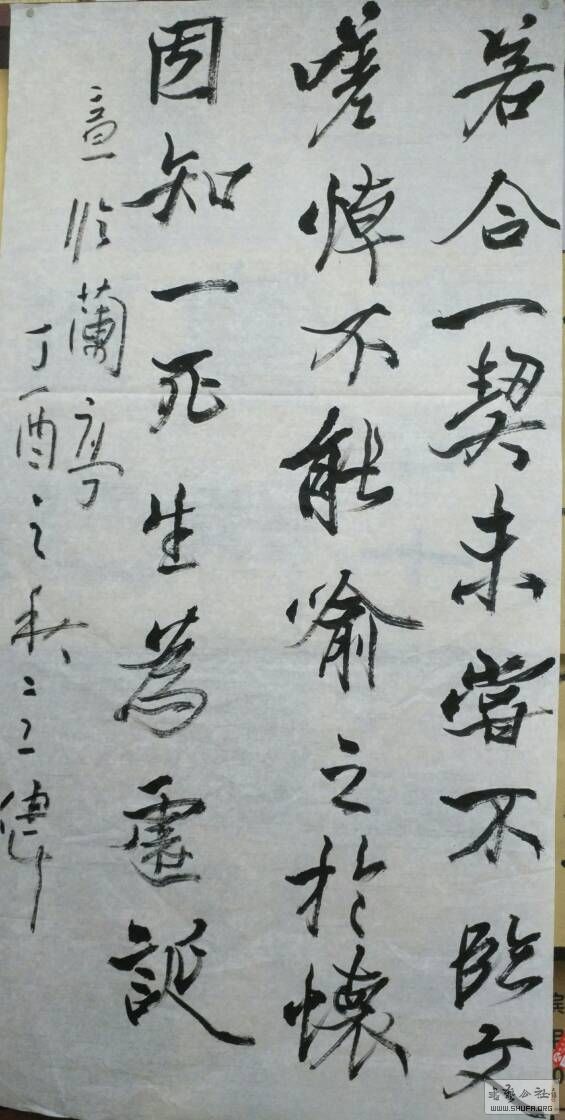 若合一契未嘗不臨文
嗟悼不能喻之於懷
固知一死生為虛誕
意臨蘭亭
丁酉之秋
书艺公社
WWW.SHUFA.ORG